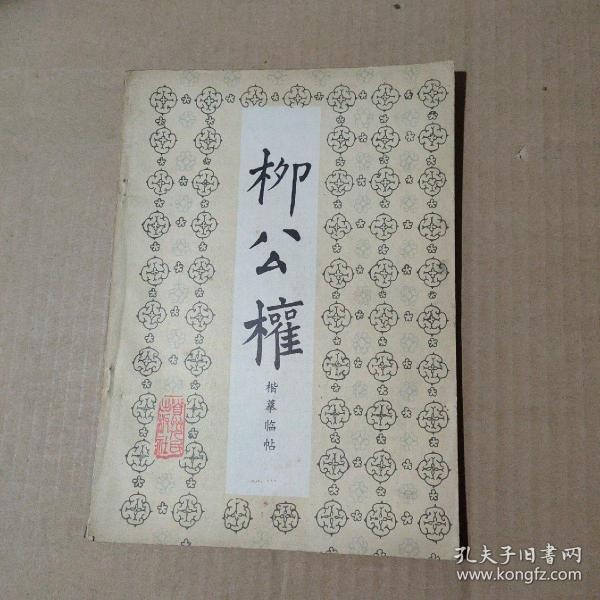 柳公權
楷摹临帖
孔夫子旧书网
www.kongfz.com